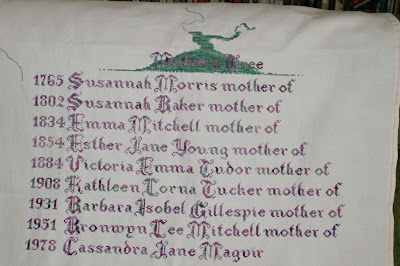 Mothers Tree
1765 Susannah Morris mother of
1802 Susannah Baker mother of
1834 Emma Mitchell mother of
1854 Esther Jane Young mother of
1884 Victoria Emma Tudor mother of
1908 Kathleen Lorna Tucker mother of
1931 Barbara Isobel Gillespie mother of
1951 Bronwyn Lee Mitchell mother of
1978 Cassandra Jane Maguir